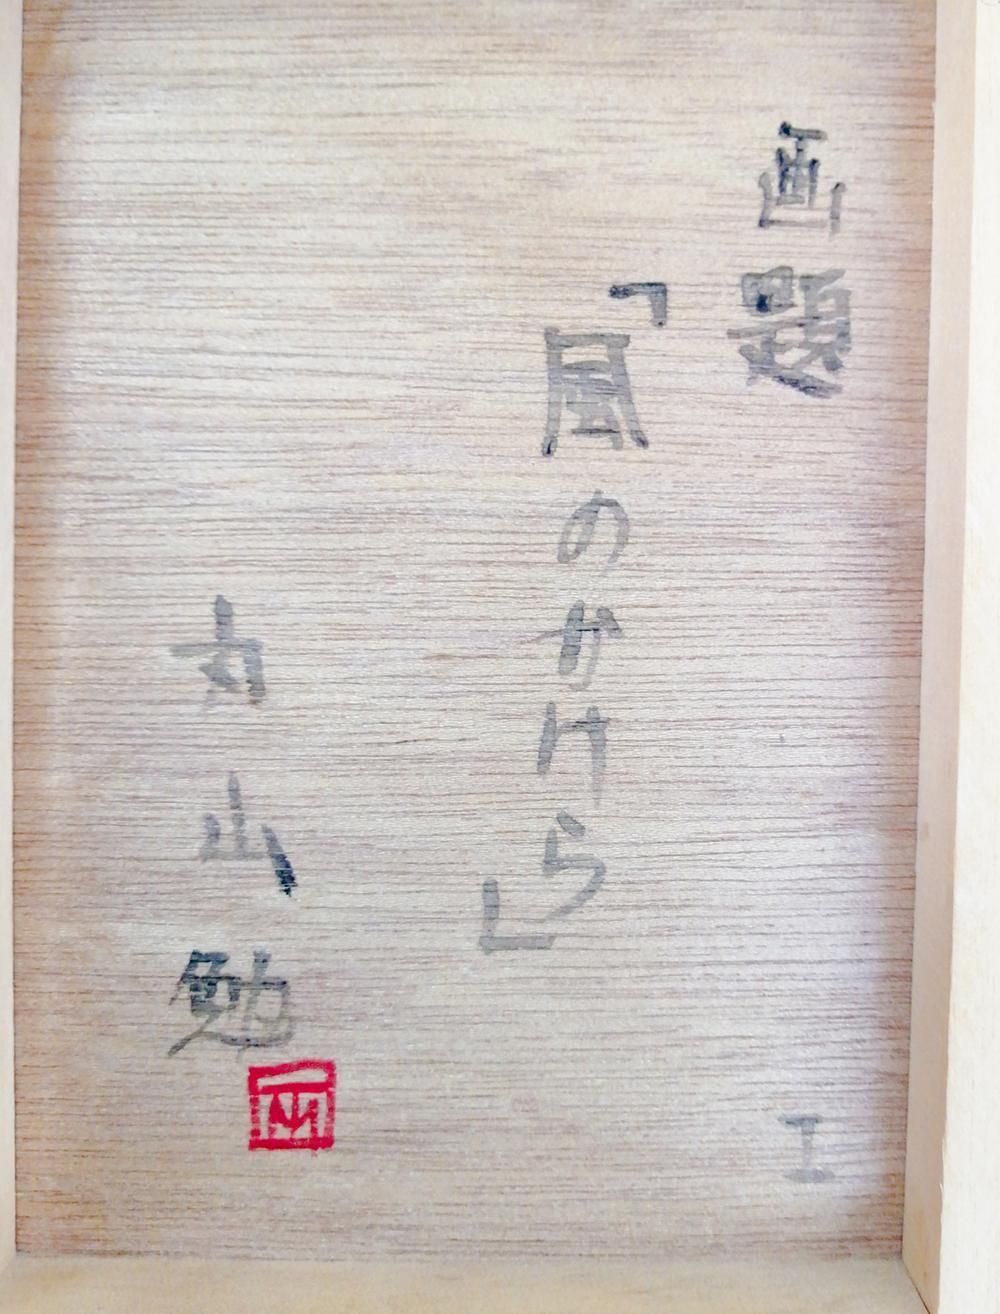 画題
「風のかけら」
丸山勉
工